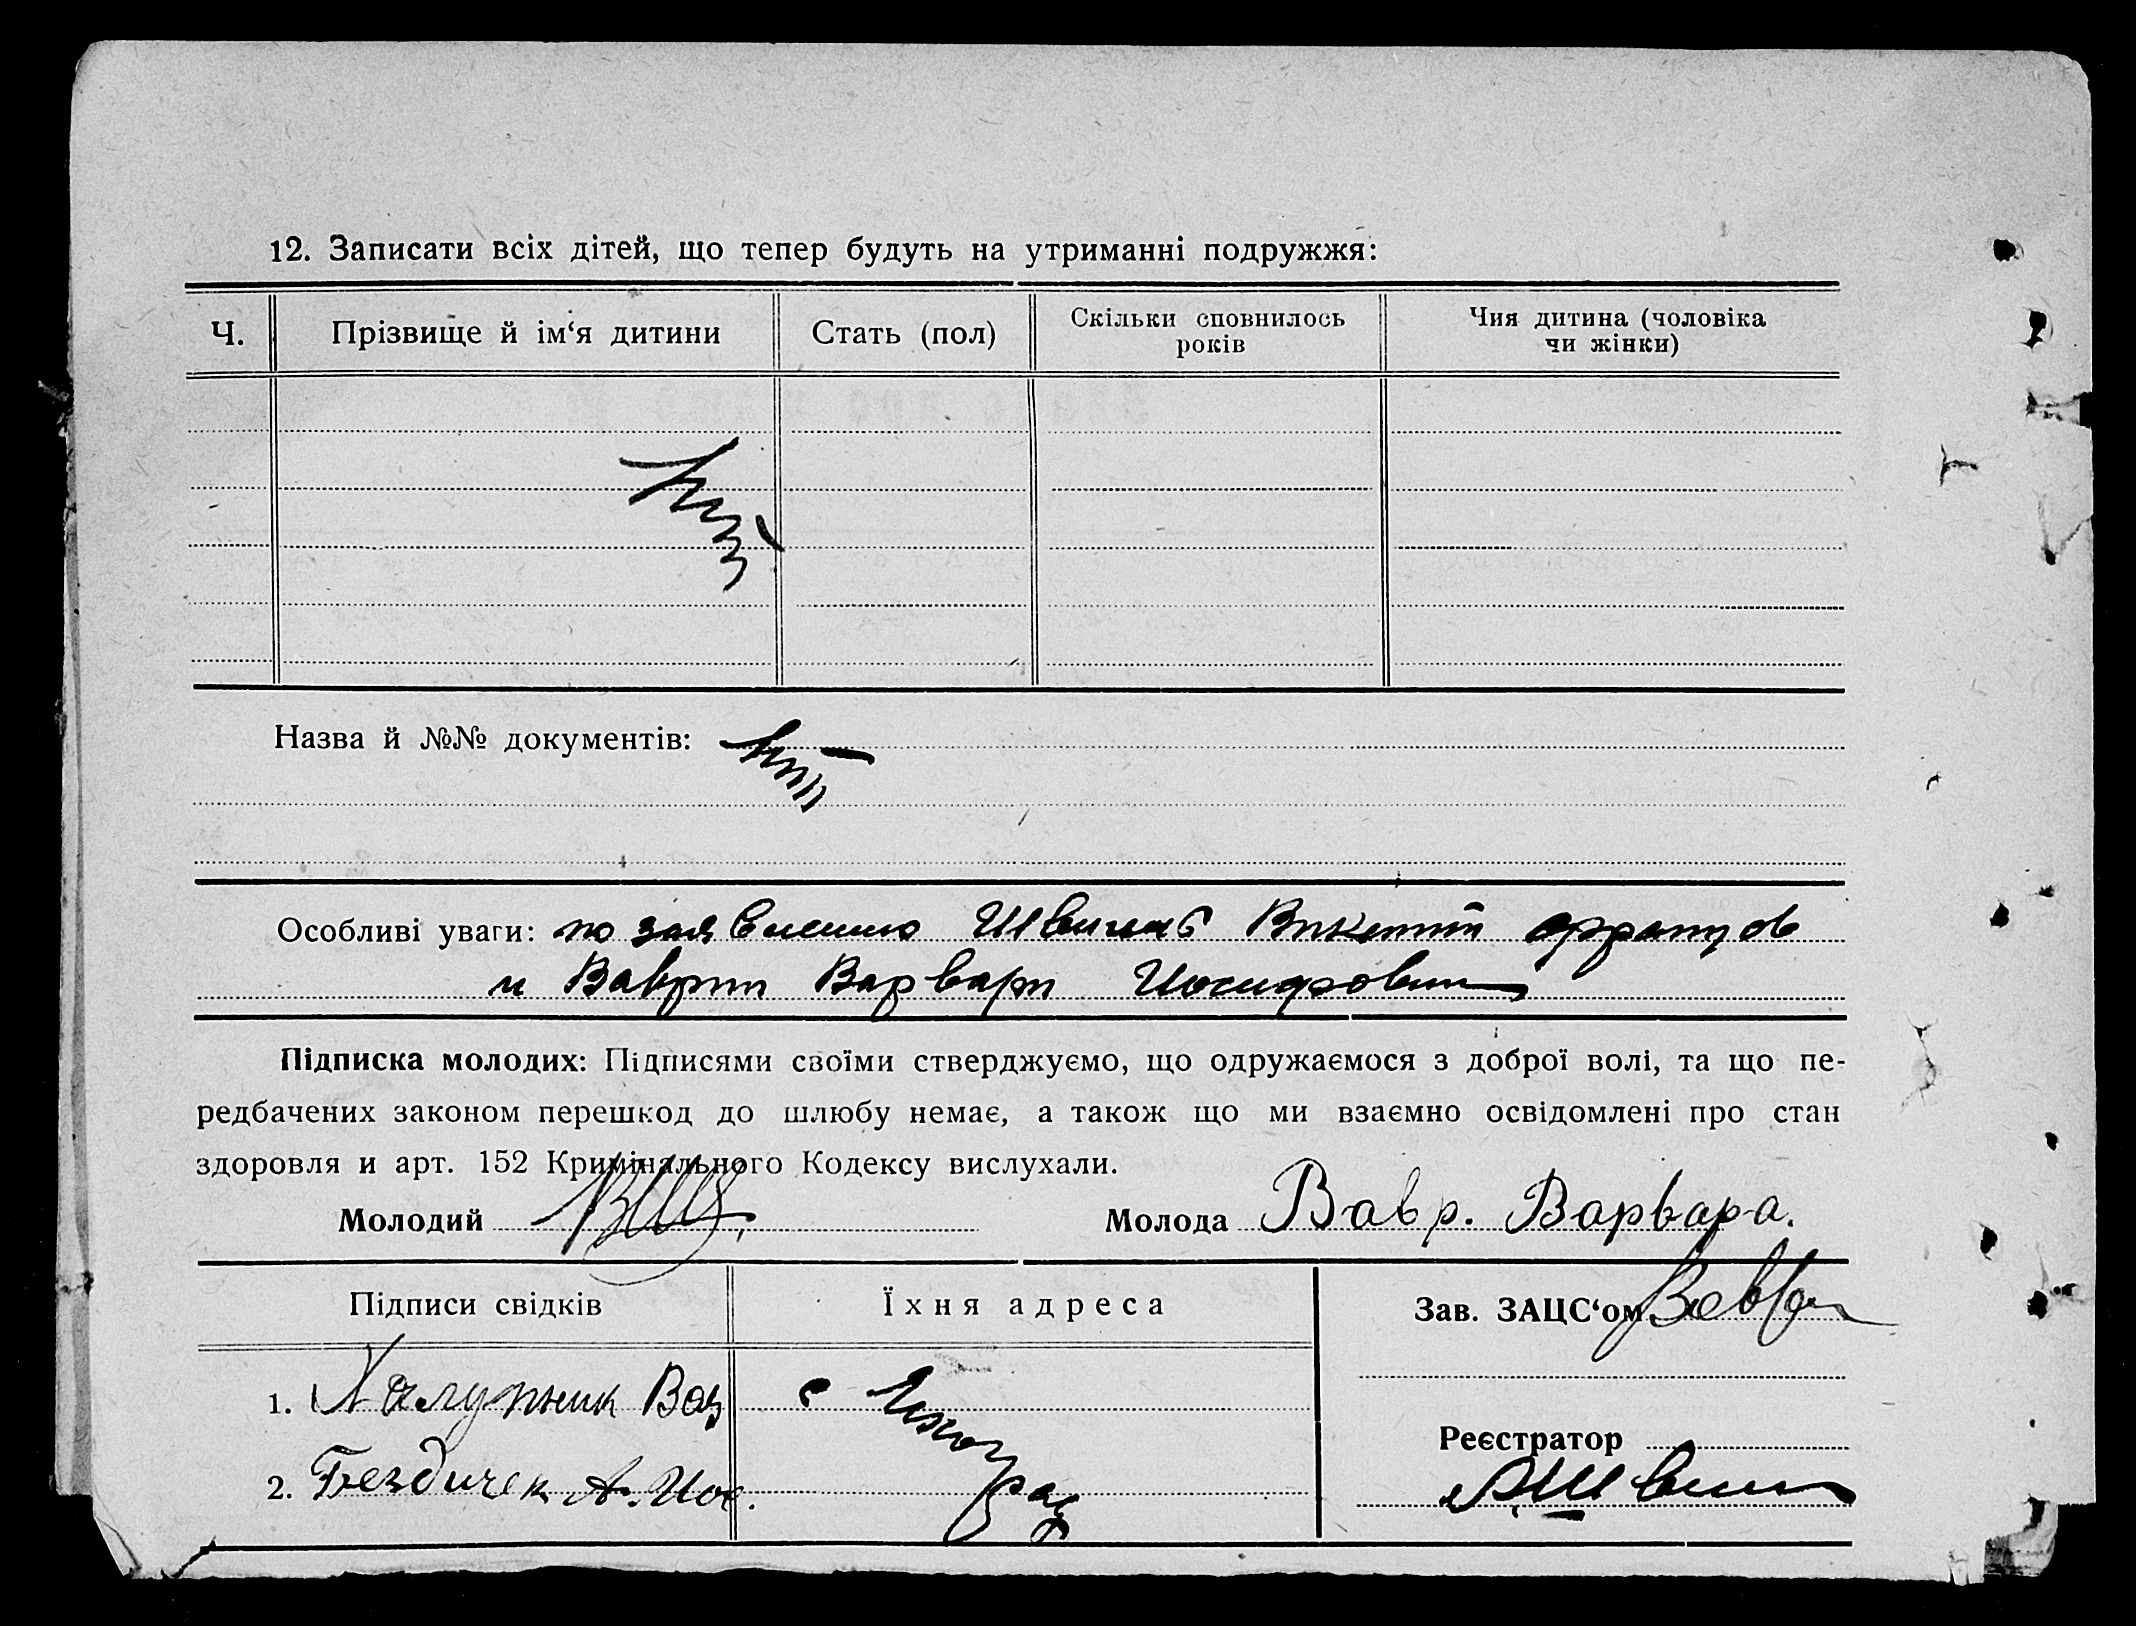 12. Записати всіх дітей, що тепер будуть на утриманні подружжя:
Ч.
Прізвище й ім‘я дитини
Стать (пол)
Скільки сповнилось
років
Чия дитина (чоловіка
чи жінки)
Назва й №№ документів:
Особливі уваги: по
и Варвари
Підписка молодих: Підписями своїми стверджуємо, що одружаємося з доброї волі, та що пе-
редбачених законом перешкод до шлюбу немає, а також що ми взаємно освідомлені про стан
здоровля и арт. 152 Кримінального Кодексу вислухали.
Молодий
Молода Вавр. Варвара.
Підписи свідків
Їхня адреса
Зав. ЗАЦС‘ом
1. Халупник Вац
Реєстратор
2. Бездичек А. Иос.